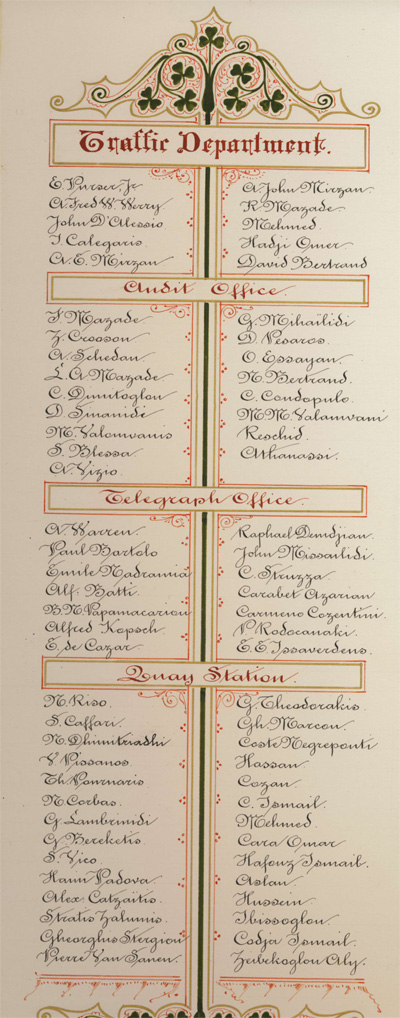 Traffic Department.
E. Purser, Jr
A. Fred W. Werry
John D'Alessio
I. Calegaris
A. E. Mirzan
A. John Mirzan
R. Mazade
Mehmed
Hadji Omer
David Bertrand
Audit Office.
F. Mazade
Z. Crooson
A. Schedan
L. A. Mazade
C. Dimitoglou
D. Smanidi
M. Valomvanis
S. Blessa
A. Vizio
G. Mihaïlidi
D. Pesaros
O. Essayan
N. Bertrand
C. Condopulo
M. M. Valamvani
Reschid
Athanassi
Telegraph Office.
A. Warren
Paul Bartolo
Emile Madramia
Alf. Batti
B. N. Papamacariou
Alfred Kopsch
E. de Cazar
Raphael Demdjian
John Missailidi
C. Struzza
Carabet Azarian
Carmeno Cozentini
P. Rodocanaki
E. E. Issaverdens
Quay Station.
N. Riso
S. Caffari
N. Dhimitriadhi
V. Pissanos
Th. Pournaris
N. Corbas
G. Lambrinidi
G. Bereketis
S. Vico
Hann Padova
Alex. Catzaïtis
Stratis Zalumis
Gheorghus Stergiou
Pierre Van Sanen
G. Theodorakis
Gh. Marcou
Coste Negreponti
Hassan
Cozan
C. Ismail
Mehmed
Cara Omar
Hafouz Ismail
Aslan
Hussein
Ibissoglou
Codja Ismail
Zeibekoglou Aly